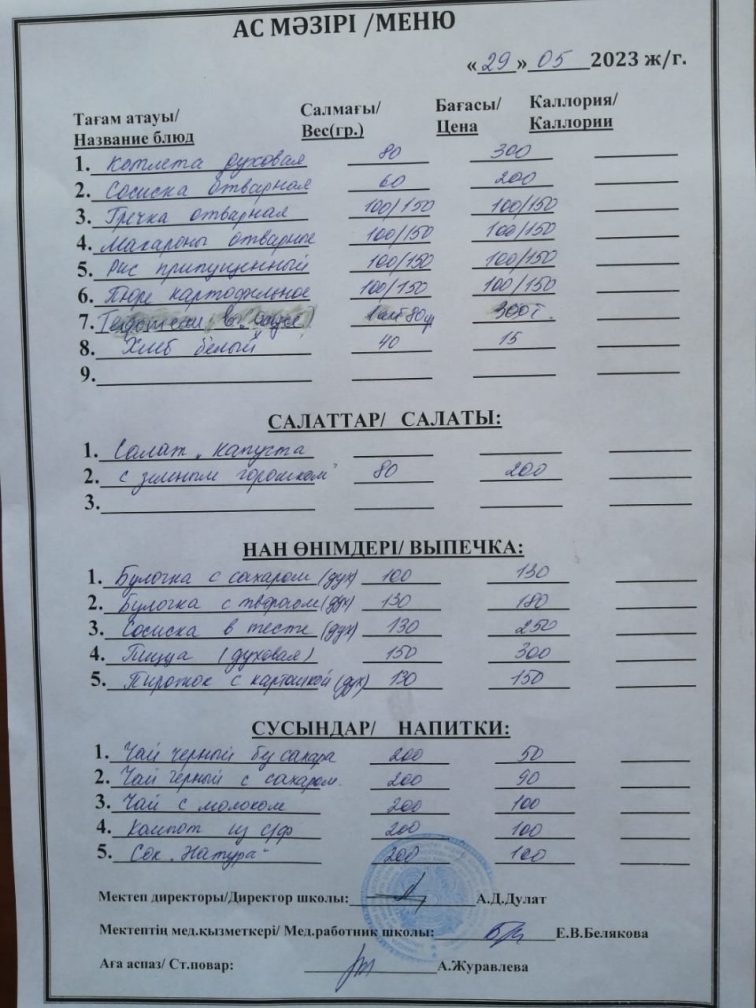 АС МӘЗІРІ /МЕНЮ
«29» 05 2023 ж/г.
Тағам атауы/ Салмағы/ Бағасы/ Каллория/
Название блюд Вес(гр.) Цена Каллории
1. Котлета духовая 80 300
2. Сосиска отварная 60 200
3. Гречка отварная 100/150 100/150
4. Макароны отварные 100/150 100/150
5. Рис припущенный 100/150 100/150
6. Пюре картофельное 100/150 100/150
7. 300т.
8. Хлеб белый 40 15
9.
САЛАТТАР/ САЛАТЫ:
1. Салат „Капуста
2. с зеленым горошком" 80 200
3.
НАН ӨНІМДЕРІ/ ВЫПЕЧКА:
1. Булочка с сахаром (дух) 100 130
2. Булочка с творогом (дух) 130 180
3. Сосиска в тесте (дух) 130 250
4. Пицца (духовая) 150 300
5. Пирожок с картошкой (дух) 130 150
СУСЫНДАР/ НАПИТКИ:
1. Чай черный без сахара 200 50
2. Чай черный с сахаром 200 90
3. Чай с молоком 200 100
4. Компот из с/ф 200 100
5. Сок „Натура" 200 100
Мектеп директоры/Директор школы: А.Д.Дулат
Мектептің мед.қызметкері/ Мед.работник школы: Е.В.Белякова
Аға аспаз/ Ст.повар: А.Журавлева